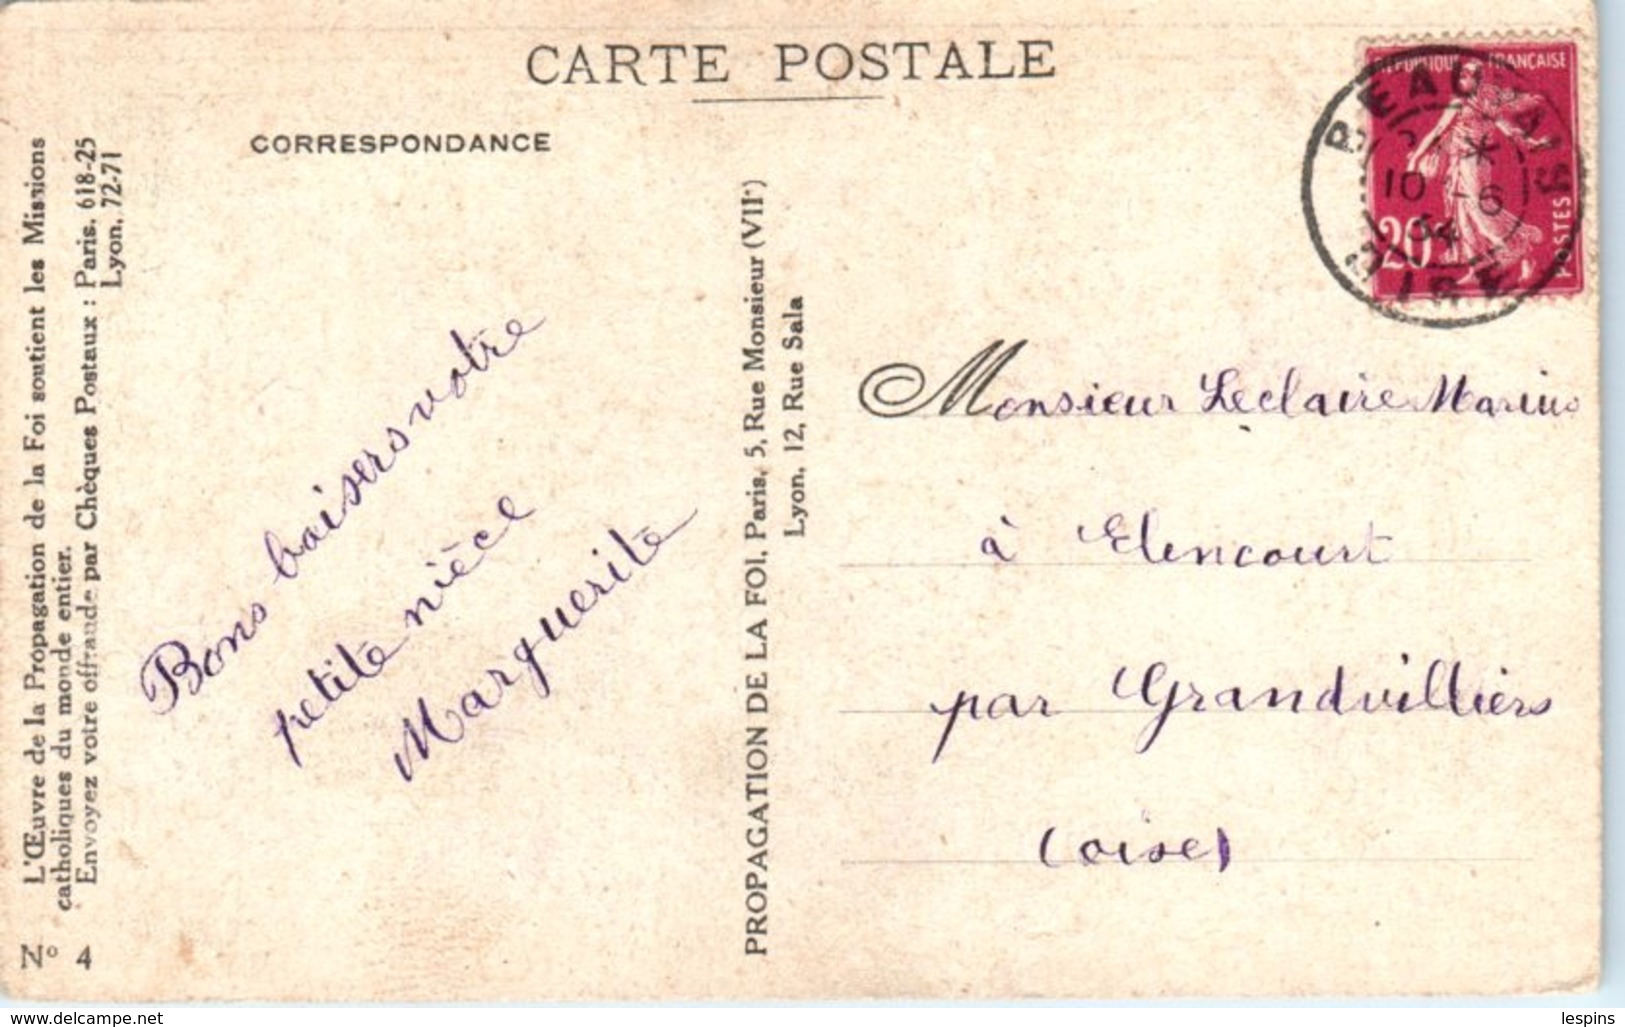 CARTE POSTALE
CORRESPONDANCE
L'Œuvre de la Propagation de la Foi soutient les Missions
catholiques du monde entier.
Envoyez votre offrande par Chèques Postaux : Paris. 618-25
Lyon. 72-71
N° 4
Bons baisers votre
petite nièce
Marguerite
PROPAGATION DE LA FOI. Paris, 5, Rue Monsieur (VIIe)
Lyon. 12, Rue Sala
REPUBLIQUE FRANÇAISE
20c
POSTES
BEAUVAIS
10 -6
34
OISE
Monsieur Leclaire Marius
à Elencourt
par Grandvilliers
(oise)
delcampe.net
lespins